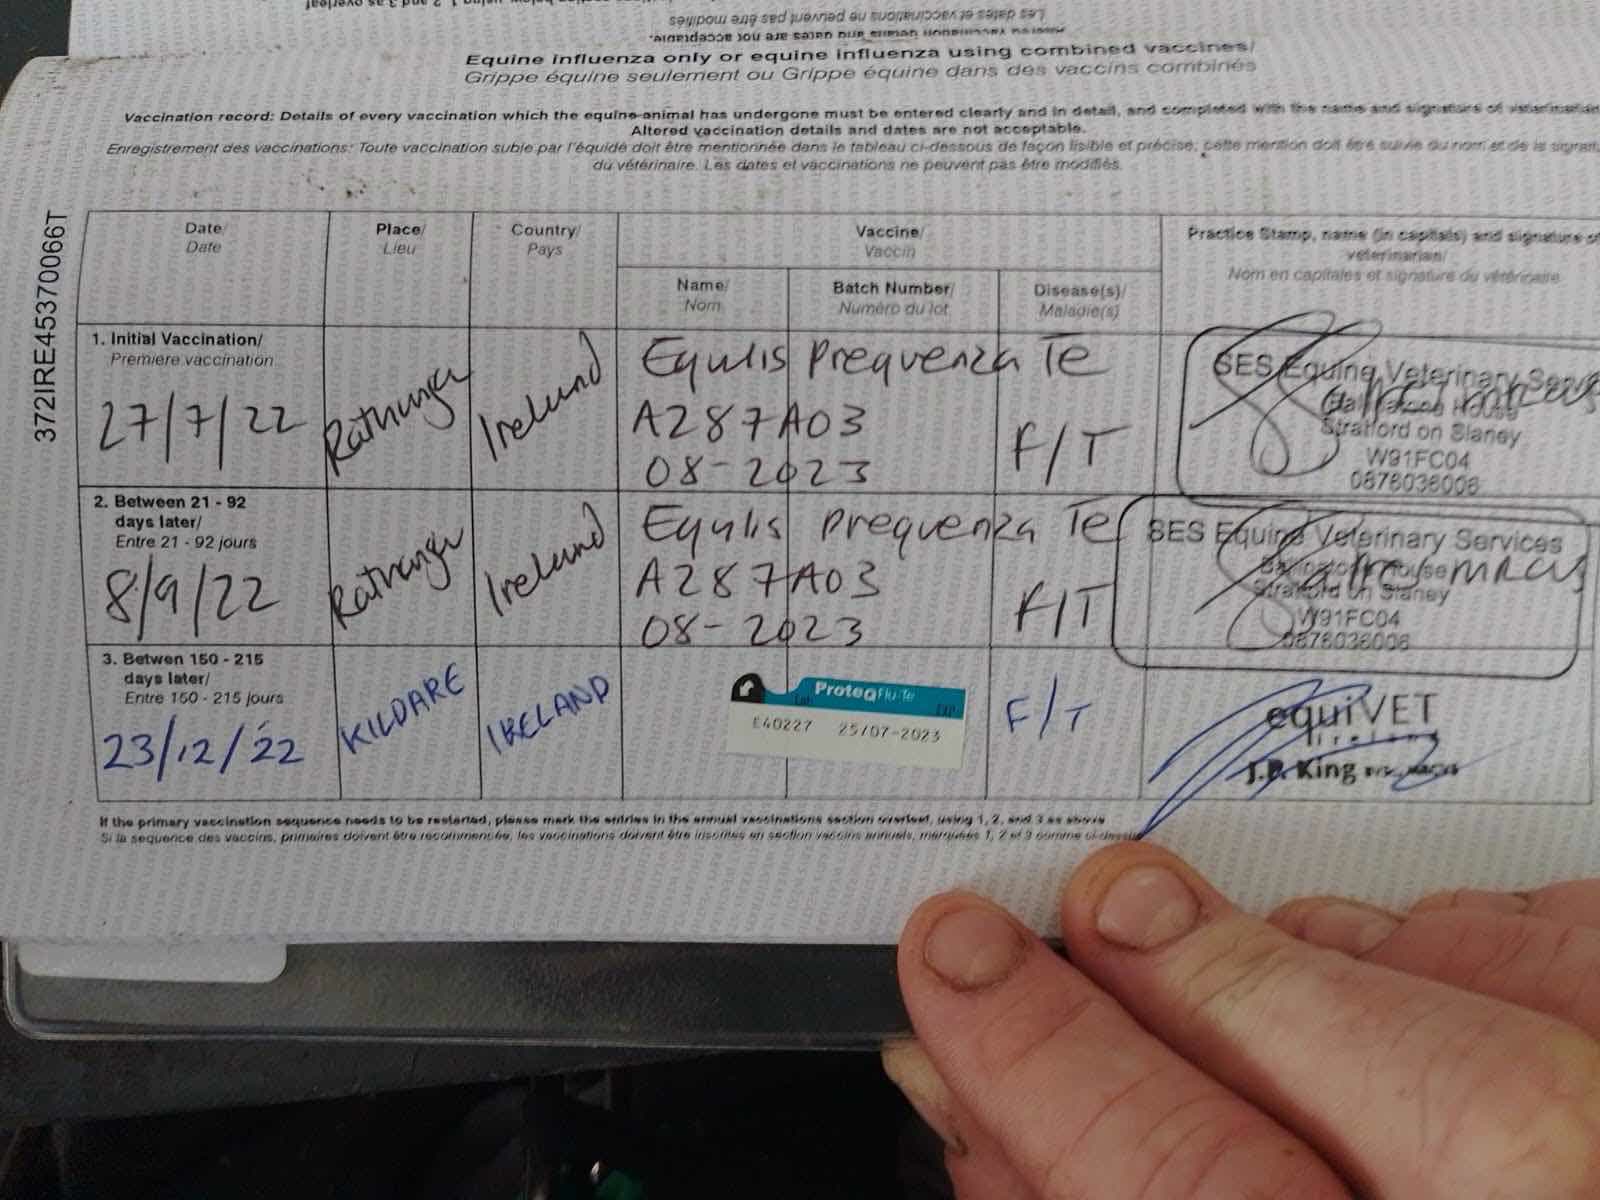 Les dates et vaccinations ne peuvent pas être modifiés
Altered vaccination details and dates are not acceptable.
Equine influenza only or equine influenza using combined vaccines/
Grippe équine seulement ou Grippe équine dans des vaccins combinés
Vaccination record: Details of every vaccination which the equine animal has undergone must be entered clearly and in detail, and completed with the name and signature of veterinarian
Altered vaccination details and dates are not acceptable.
Enregistrement des vaccinations: Toute vaccination subie par l'équidé doit être mentionnée dans le tableau ci-dessous de façon lisible et précise; cette mention doit être suivie du nom et de la signat
du vétérinaire. Les dates et vaccinations ne peuvent pas être modifiés.
372IRE45370066T
Date/
Date
Place/
Lieu
Country/
Pays
Vaccine/
Vaccin
Practice Stamp, name (in capitals) and signature of
veterinarian/
Nom en capitales et signature du vétérinaire
Name/
Nom
Batch Number/
Numéro du lot
Disease(s)/
Maladie(s)
1. Initial Vaccination/
Premiere vaccination
27/7/22
Rathangan
Ireland
Equilis Prequenza Te
A287A03
08-2023
F/T
SES Equine Veterinary Servic
House
Stratford on Slaney
W91FC04
0876036006
2. Between 21 - 92
days later/
Entre 21 - 92 jours
8/9/22
Rathangan
Ireland
Equilis Prequenza Te
A287A03
08-2023
F/T
SES Equine Veterinary Services
House
Stratford on Slaney
W91FC04
0876036006
3. Betwen 150 - 215
days later/
Entre 150 - 215 jours
23/12/22
KILDARE
IRELAND
ProteqFlu-Te
Lot EXP
E40227 25/07-2023
F/T
equiVET
Ireland
J.P. King
If the primary vaccination sequence needs to be restarted, please mark the entries in the annual vaccinations section overleaf, using 1, 2, and 3 as above
Si la sequence des vaccins, primaires doivent être recommencée, les vaccinations doivent être inscrites en section vaccins annuels, marquées 1, 2 et 3 comme ci-dessus